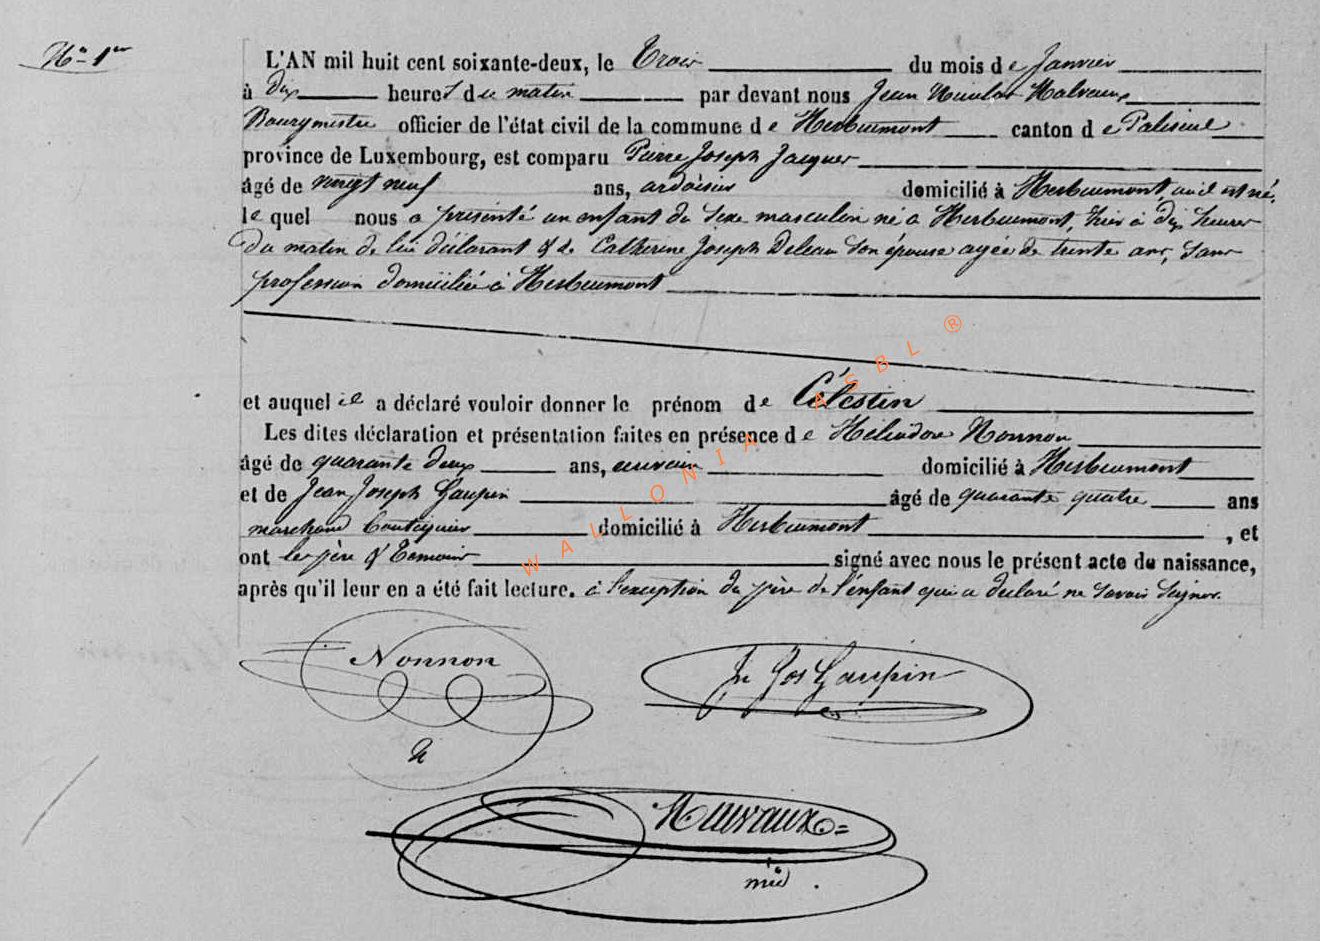 No 1er
L'AN mil huit cent soixante-deux, le Trois du mois de Janvier
à dix heures du matin par devant nous Jean Nicolas Malvaux
Bourgmestre officier de l'état civil de la commune de Herbeumont canton de Paliseul
province de Luxembourg, est comparu Pierre Joseph Jacques
âgé de vingt neuf ans, ardoisier domicilié à Herbeumont, où il est né,
lequel nous a présenté un enfant du sexe masculin né à Herbeumont, hier à dix heures
du matin de lui déclarant & de Catherine Joseph Deleau son épouse agée de trente ans, sans
profession domiciliée à Herbeumont
et auquel il a déclaré vouloir donner le prénom de Célestin
Les dites déclaration et présentation faites en présence de Héliodore Nonnon
âgé de quarante deux ans, domicilié à Herbeumont
et de Jean Joseph Gaupin âgé de quarante quatre ans
marchand boutiquier domicilié à Herbeumont, et
ont les père & témoins signé avec nous le présent acte de naissance,
après qu'il leur en a été fait lecture. à l'exception du père de l'enfant qui a declaré ne savoir signer.
Nonnon
Jn Jos Gaupin
WALLONIA ASBL ®